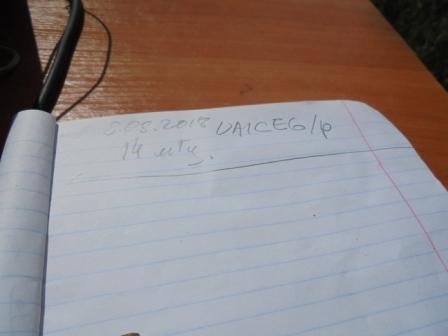 5.05.2018 UA1CEG/p
14 мгц.